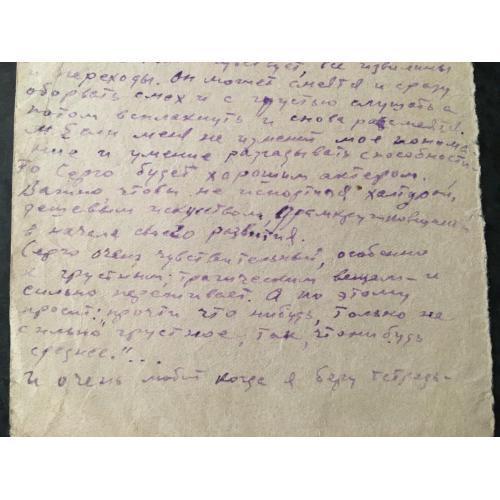 чувствует, все извилины
и переходы. Он может смеятся и сразу
оборвать смех и с грустью слушать а
потом всплакнуть и снова рассмеятся.
Если меня не изменит мое понима-
ние и умение разгадывать способности
то Серго будет хорошим актером.
Важно чтобы не испортился халтурой,
дешевым искусством,
в начале своего развития.
Серго очень чувствительный, особенно
к грустным, трагическим вещам — и
сильно переживает. А по этому
просит: „прочти что нибудь, только не
сильно грустное, так, что нибудь
среднее."...
И очень любит когда я беру тетрадь-